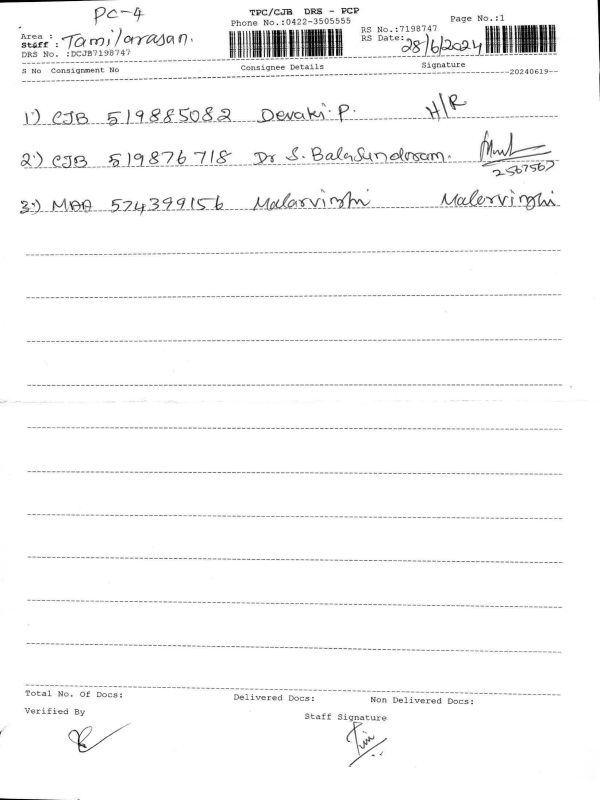 PC-4
TPC/CJB DRS - PCP
Phone No.:0422-3505555
Page No.:1
Area :
Staff : Tamilarasan.
RS No.:7198747
RS Date: 28/6/2024
DRS No. :DCJB7198747
S No Consignment No Consignee Details Signature
--20240619--
1) CJB 519885082 Devaki.P. H/R
2) CJB 519876718 Dr S. BalaSundaram.
2567567
3) MAA 574399156 Malarvizhi Malarvizhi
Total No. Of Docs: Delivered Docs: Non Delivered Docs:
Verified By
Staff Signature